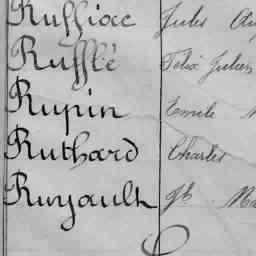 Ruffiac Jules
Rufflé Félix Julien
Rupin Emile
Ruthard Charles
Ruyault Jh